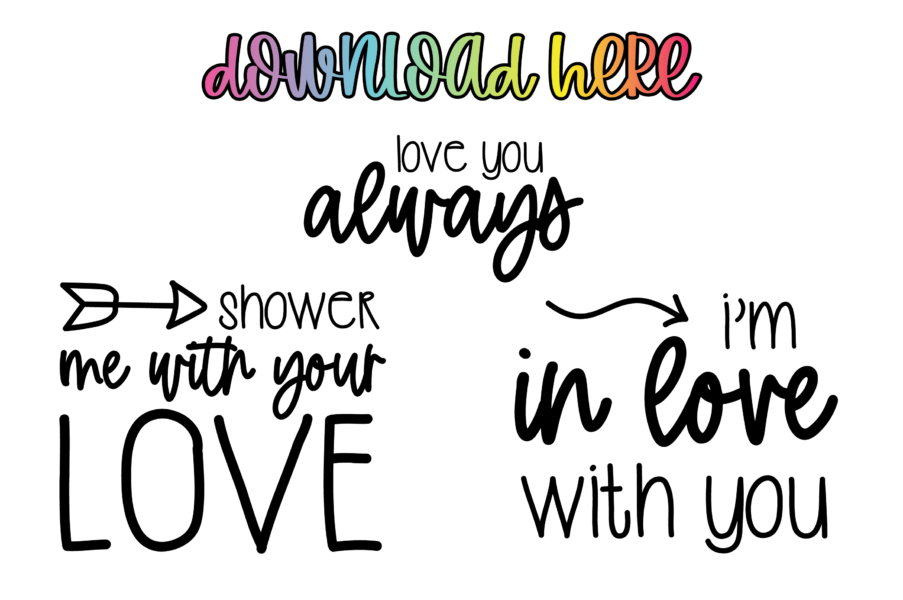 download here
love you
always
shower
me with your
LOVE
i'm
in love
with you